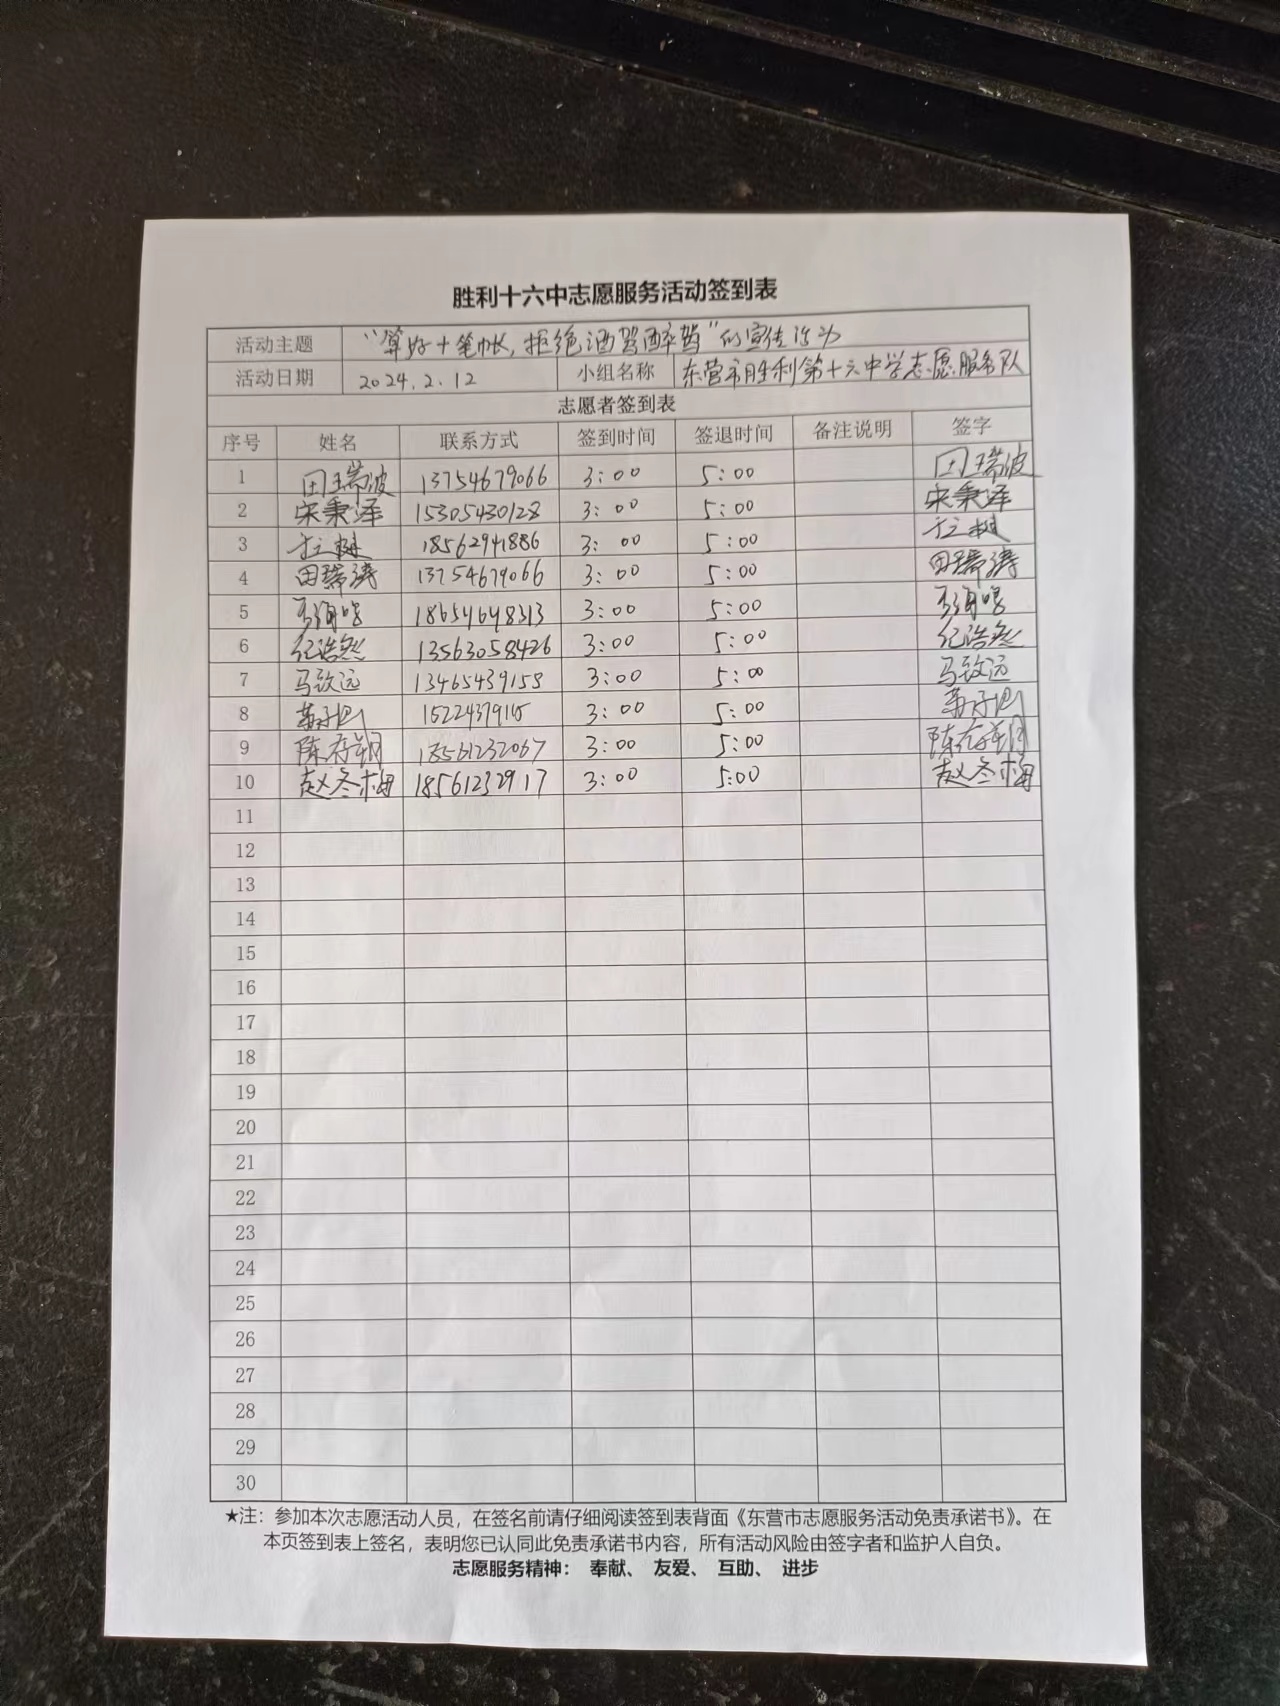 胜利十六中志愿服务活动签到表
活动主题 "算好十笔帐,拒绝酒驾醉驾"的宣传行为
活动日期 2024.2.12 小组名称 东营市胜利第十六中学志愿服务队
志愿者签到表
序号 姓名 联系方式 签到时间 签退时间 备注说明 签字
1 田瑞波 13754679066 3:00 5:00 田瑞波
2 宋秉泽 15305430128 3:00 5:00 宋秉泽
3 18562941886 3:00 5:00
4 田瑞涛 13754679066 3:00 5:00 田瑞涛
5 18654648313 3:00 5:00
6 纪浩然 13563058426 3:00 5:00 纪浩然
7 马致远 13465439158 3:00 5:00 马致远
8 3:00 5:00
9 陈存朔 18561232067 3:00 5:00 陈存朔
10 赵冬梅 18561232917 3:00 5:00 赵冬梅
11
12
13
14
15
16
17
18
19
20
21
22
23
24
25
26
27
28
29
30
★注：参加本次志愿活动人员，在签名前请仔细阅读签到表背面《东营市志愿服务活动免责承诺书》。在
本页签到表上签名，表明您已认同此免责承诺书内容，所有活动风险由签字者和监护人自负。
志愿服务精神： 奉献、 友爱、 互助、 进步